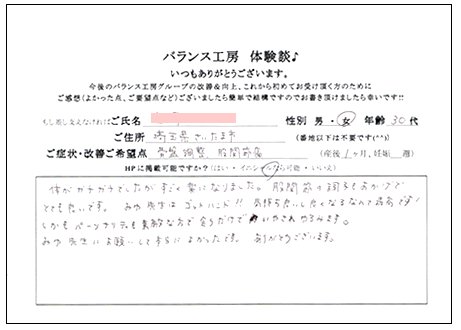 バランス工房 体験談♪
いつもありがとうございます。
今後のバランス工房グループの改善&向上、これから初めてお受け頂く方のために
ご感想(よかった点、ご要望点など)ございましたら簡単で結構ですのでお書き頂けましたら幸いです!!
もし差し支えなければご氏名 性別 男・女 年齢 30代
ご住所 埼玉県さいたま市 (番地以下は不要です^^)
ご症状・改善ご希望点 骨盤調整 股間節痛 (産後1ヶ月、妊娠 週)
HPに掲載可能ですか?(はい・イニシャルなら可能・いいえ)
体がガチガチでしたがすごく楽になりました。股間節の調子もおかげで
とても良いです。みゆ先生はゴッドハンド!! 気持ち良い
しかもパーソナリティも素敵な方で会うだけで いやされちゃいます。
みゆ先生にお願いして本当によかったです。ありがとうございます。